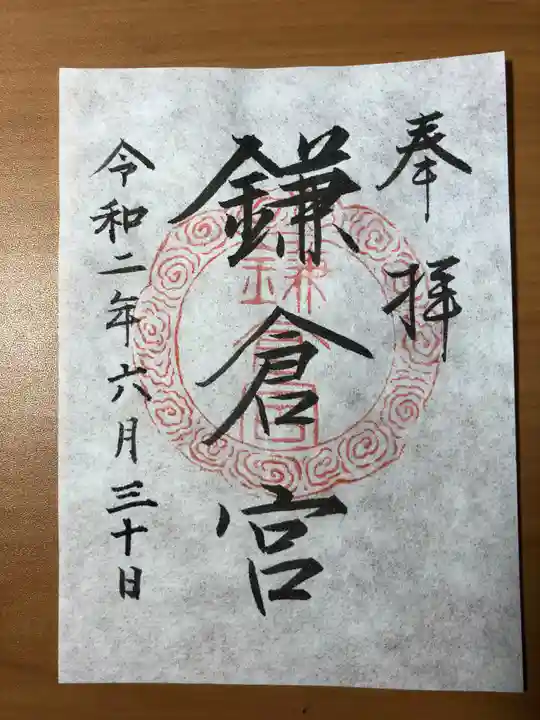 奉拝
鎌倉宮
令和二年六月三十日
鎌倉宮